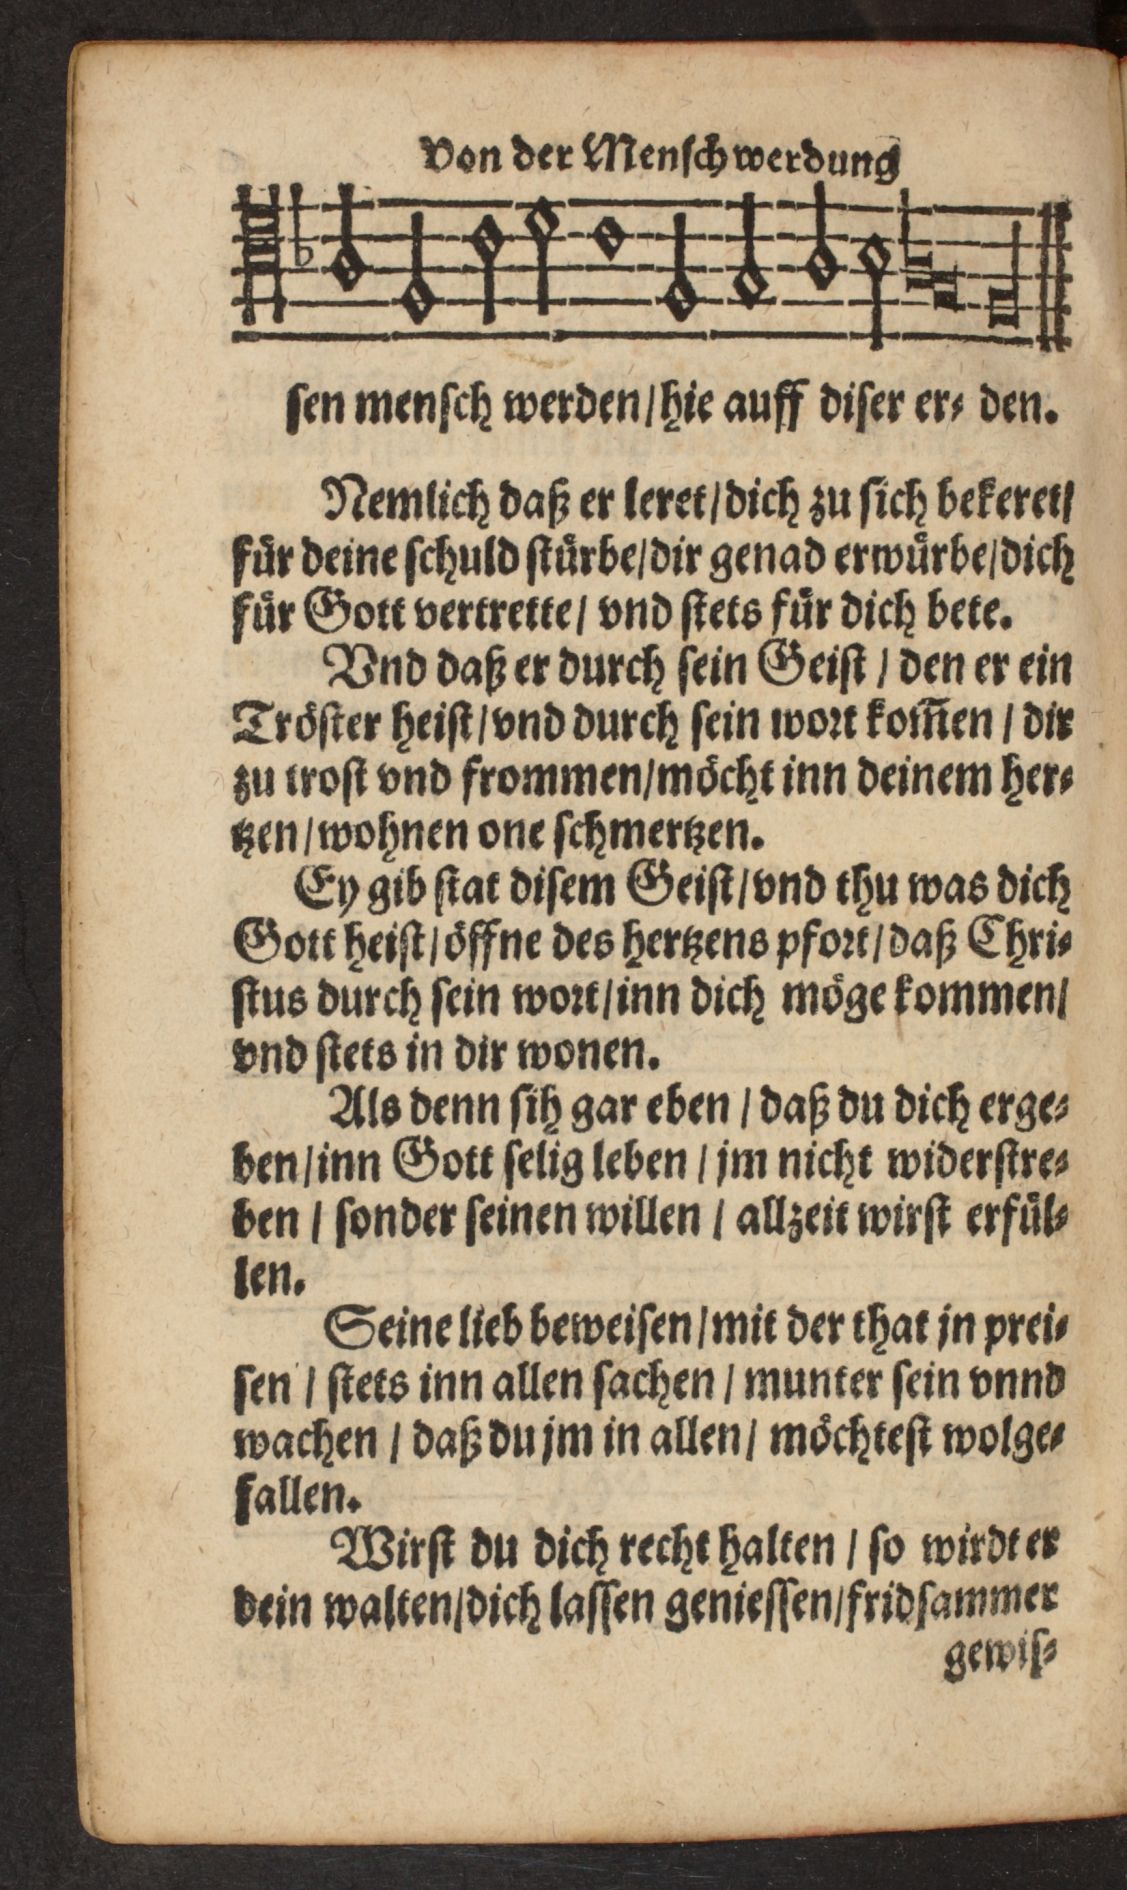 Von der Menschwerdung
sen mensch werden/hie auff diser er⸗ den.
Nemlich daß er leret/dich zu sich bekeret/
fuͤr deine schuld stuͤrbe/dir genad erwuͤrbe/dich
fuͤr Gott vertrette/ vnd stets fuͤr dich bete.
Vnd daß er durch sein Geist / den er ein
Troͤster heist/vnd durch sein wort kom̃en / dir
zu trost vnd frommen/moͤcht inn deinem her⸗
tzen/wohnen one schmertzen.
Ey gib stat disem Geist/vnd thu was dich
Gott heist/oͤffne des hertzens pfort/daß Chri⸗
stus durch sein wort/inn dich moͤge kommen/
vnd stets in dir wonen.
Als denn sih gar eben / daß du dich erge⸗
ben/inn Gott selig leben / jm nicht widerstre⸗
ben / sonder seinen willen / allzeit wirst erfuͤl⸗
len.
Seine lieb beweisen/mit der that jn prei⸗
sen / stets inn allen sachen / munter sein vnnd
wachen / daß du jm in allen/ moͤchtest wolge⸗
fallen.
Wirst du dich recht halten / so wirdt er
dein walten/dich lassen geniessen/fridsammer
gewis⸗